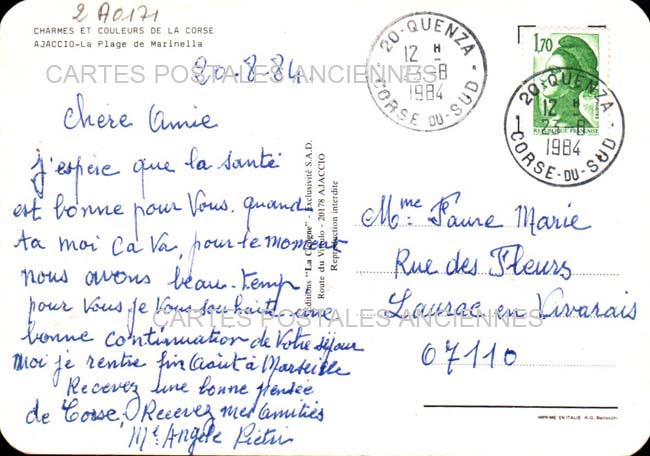 2 A0171
CHARMES ET COULEURS DE LA CORSE
AJACCIO-La Plage de Marinella
CARTES POSTALES ANCIENNES
20-8-84
20-QUENZA
12 H
23-8
1984
CORSE DU-SUD
1,70
REPUBLIQUE FRANÇAISE
20-QUENZA
12 H
23-8
1984
CORSE-DU-SUD
Chère Amie
j'espère que la santé
est bonne pour Vous. quand
ta moi Ca Va, pour le moment
nous avons beau-temp
pour Vous je Vous souhaite une
bonne continuation de Votre séjour
Moi je rentre fin Août à Marseille
Recevez une bonne pensée
de Corse, Recevez mes amitiés
Me Angèle Pietri
Editions "La Cigogne" - Exclusivité S.A.D.
Route du Vittulo - 20178 AJACCIO
Reproduction interdite
Mme: Faure Marie
Rue des Fleurs
Laurac en Vivarais
07110
CARTES POSTALES ANCIENNES
IMPRIME EN ITALIE